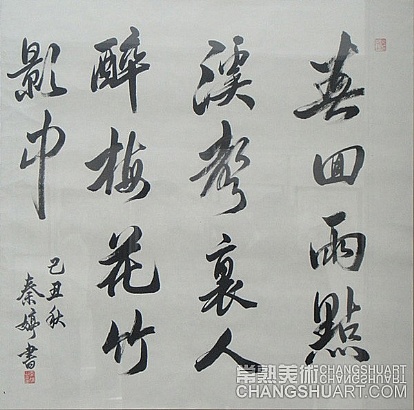 春回雨點
溪聲裏人
醉梅花竹
影中
己丑秋
秦婷書
常熟美術 CHANGSHUART
CHANGSHUART.COM